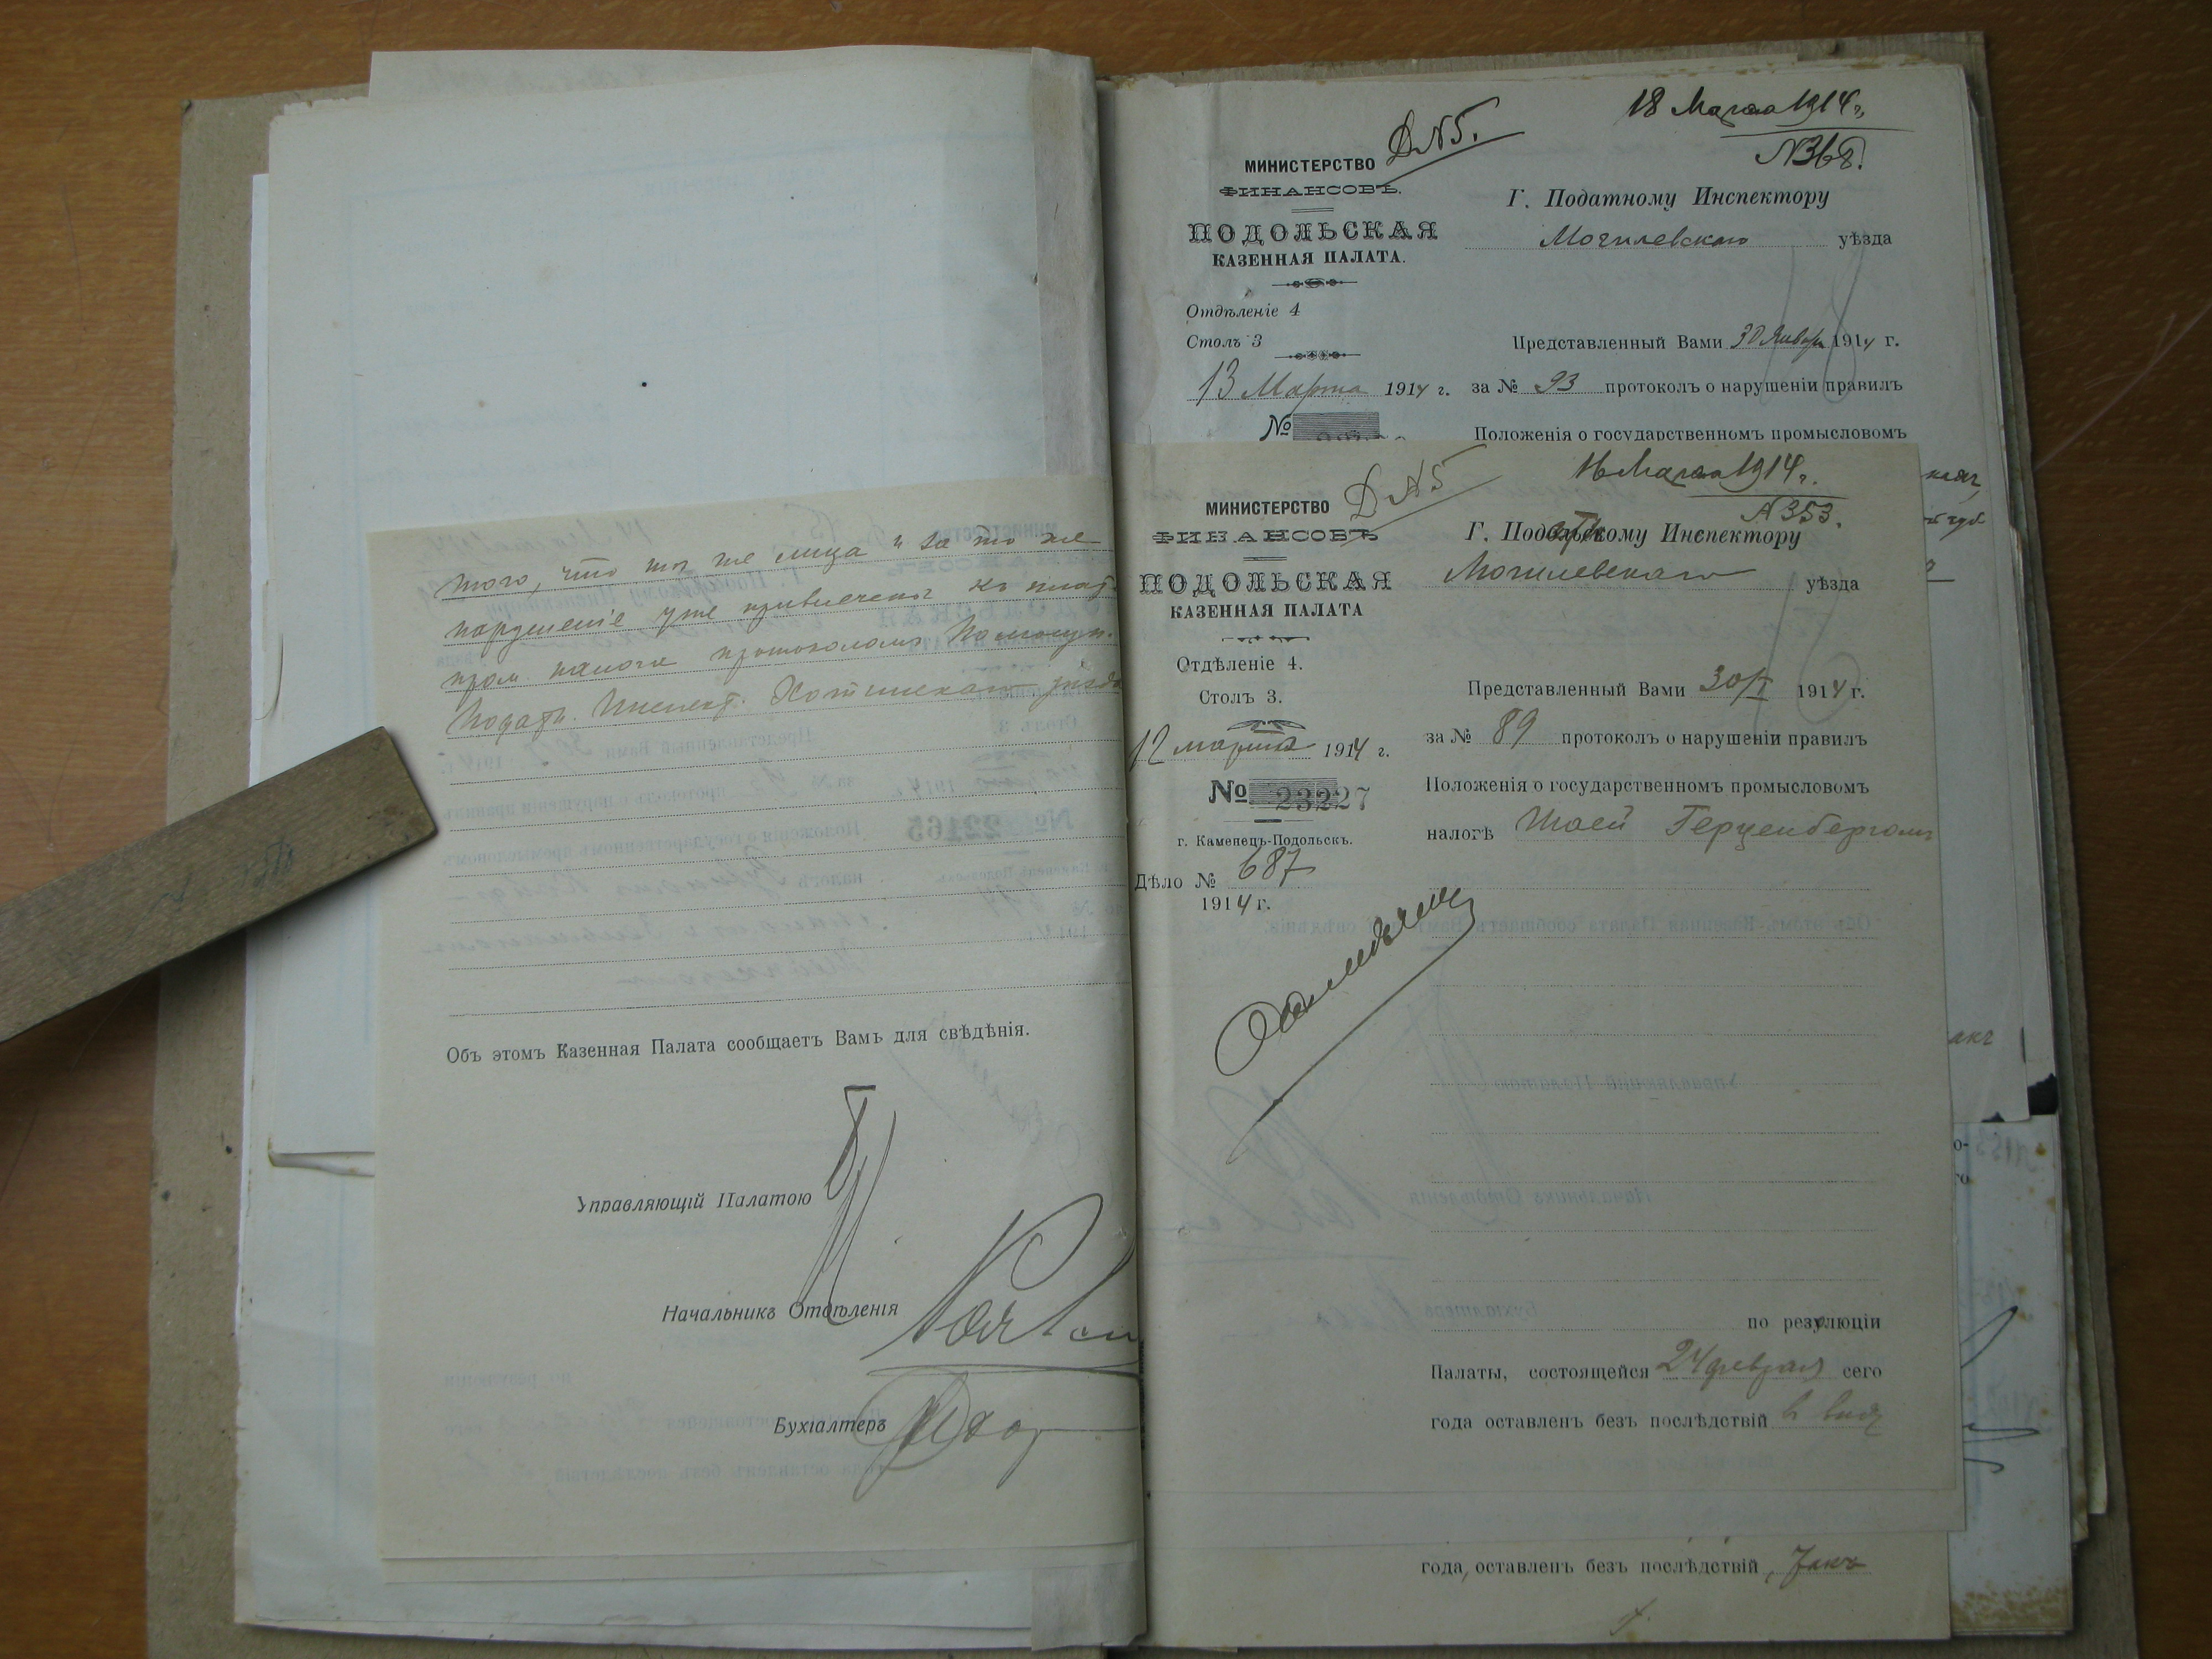 того, что тѣ же лица и за то же
нарушеніе уже привлечены къ плат.
пром. налога протоколомъ
Податн. Инспект. Хотинскаго уѣзда
Объ этомъ Казенная Палата сообщаетъ Вамъ для свѣдѣнія.
Управляющій Палатою
Начальникъ Отдѣленія
Бухгалтеръ
18 Марта 1914 г.
Д N 5.
N 368.
МИНИСТЕРСТВО
ФИНАНСОВЪ.
ПОДОЛЬСКАЯ
КАЗЕННАЯ ПАЛАТА.
Отдѣленіе 4
Столъ 3
13 Марта 1914 г.
№
Г. Податному Инспектору
Могилевскаго уѣзда
Представленный Вами 30 Января 1914 г.
за № 93 протоколъ о нарушеніи правилъ
Положенія о государственномъ промысловомъ
16 Марта 1914 г.
Д N 5
N 353.
МИНИСТЕРСТВО
ФИНАНСОВЪ
ПОДОЛЬСКАЯ
КАЗЕННАЯ ПАЛАТА
Отдѣленіе 4.
Столъ 3.
12 марта 1914 г.
№ 23227
г. Каменецъ-Подольскъ.
Дѣло № 687
1914 г.
Г. Податному Инспектору
Могилевскаго уѣзда
Представленный Вами 30/I 1914 г.
за № 89 протоколъ о нарушеніи правилъ
Положенія о государственномъ промысловомъ
налогѣ Шаей Герценбергомъ
по резолюціи
Палаты, состоящейся 24 февраля сего
года оставленъ безъ послѣдствій в виду
года, оставленъ безъ послѣдствій, такъ